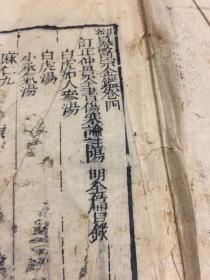 御纂醫宗金鑑卷四
訂正仲景全書傷寒論註陽明全篇目錄
白虎加人參湯
白虎湯
小承氣湯
麻仁丸